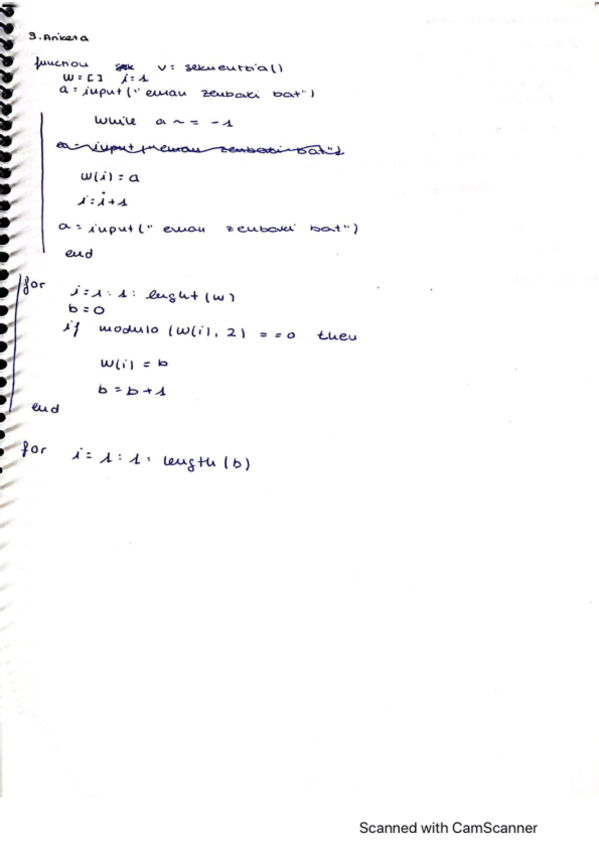 3. Ariketa
function v = sekuentzia()
w = [] i = 1
a = input (" eman zenbaki bat")
while a ~ = -1
a = input (" eman zenbaki bat")
w(i) = a
i = i + 1
a = input (" eman zenbaki bat")
end
for i = 1 : 1 : lenght (w)
b = 0
if modulo (w(i), 2) = = 0 then
w(i) = b
b = b + 1
end
for i = 1 : 1 : length (b)
Scanned with CamScanner